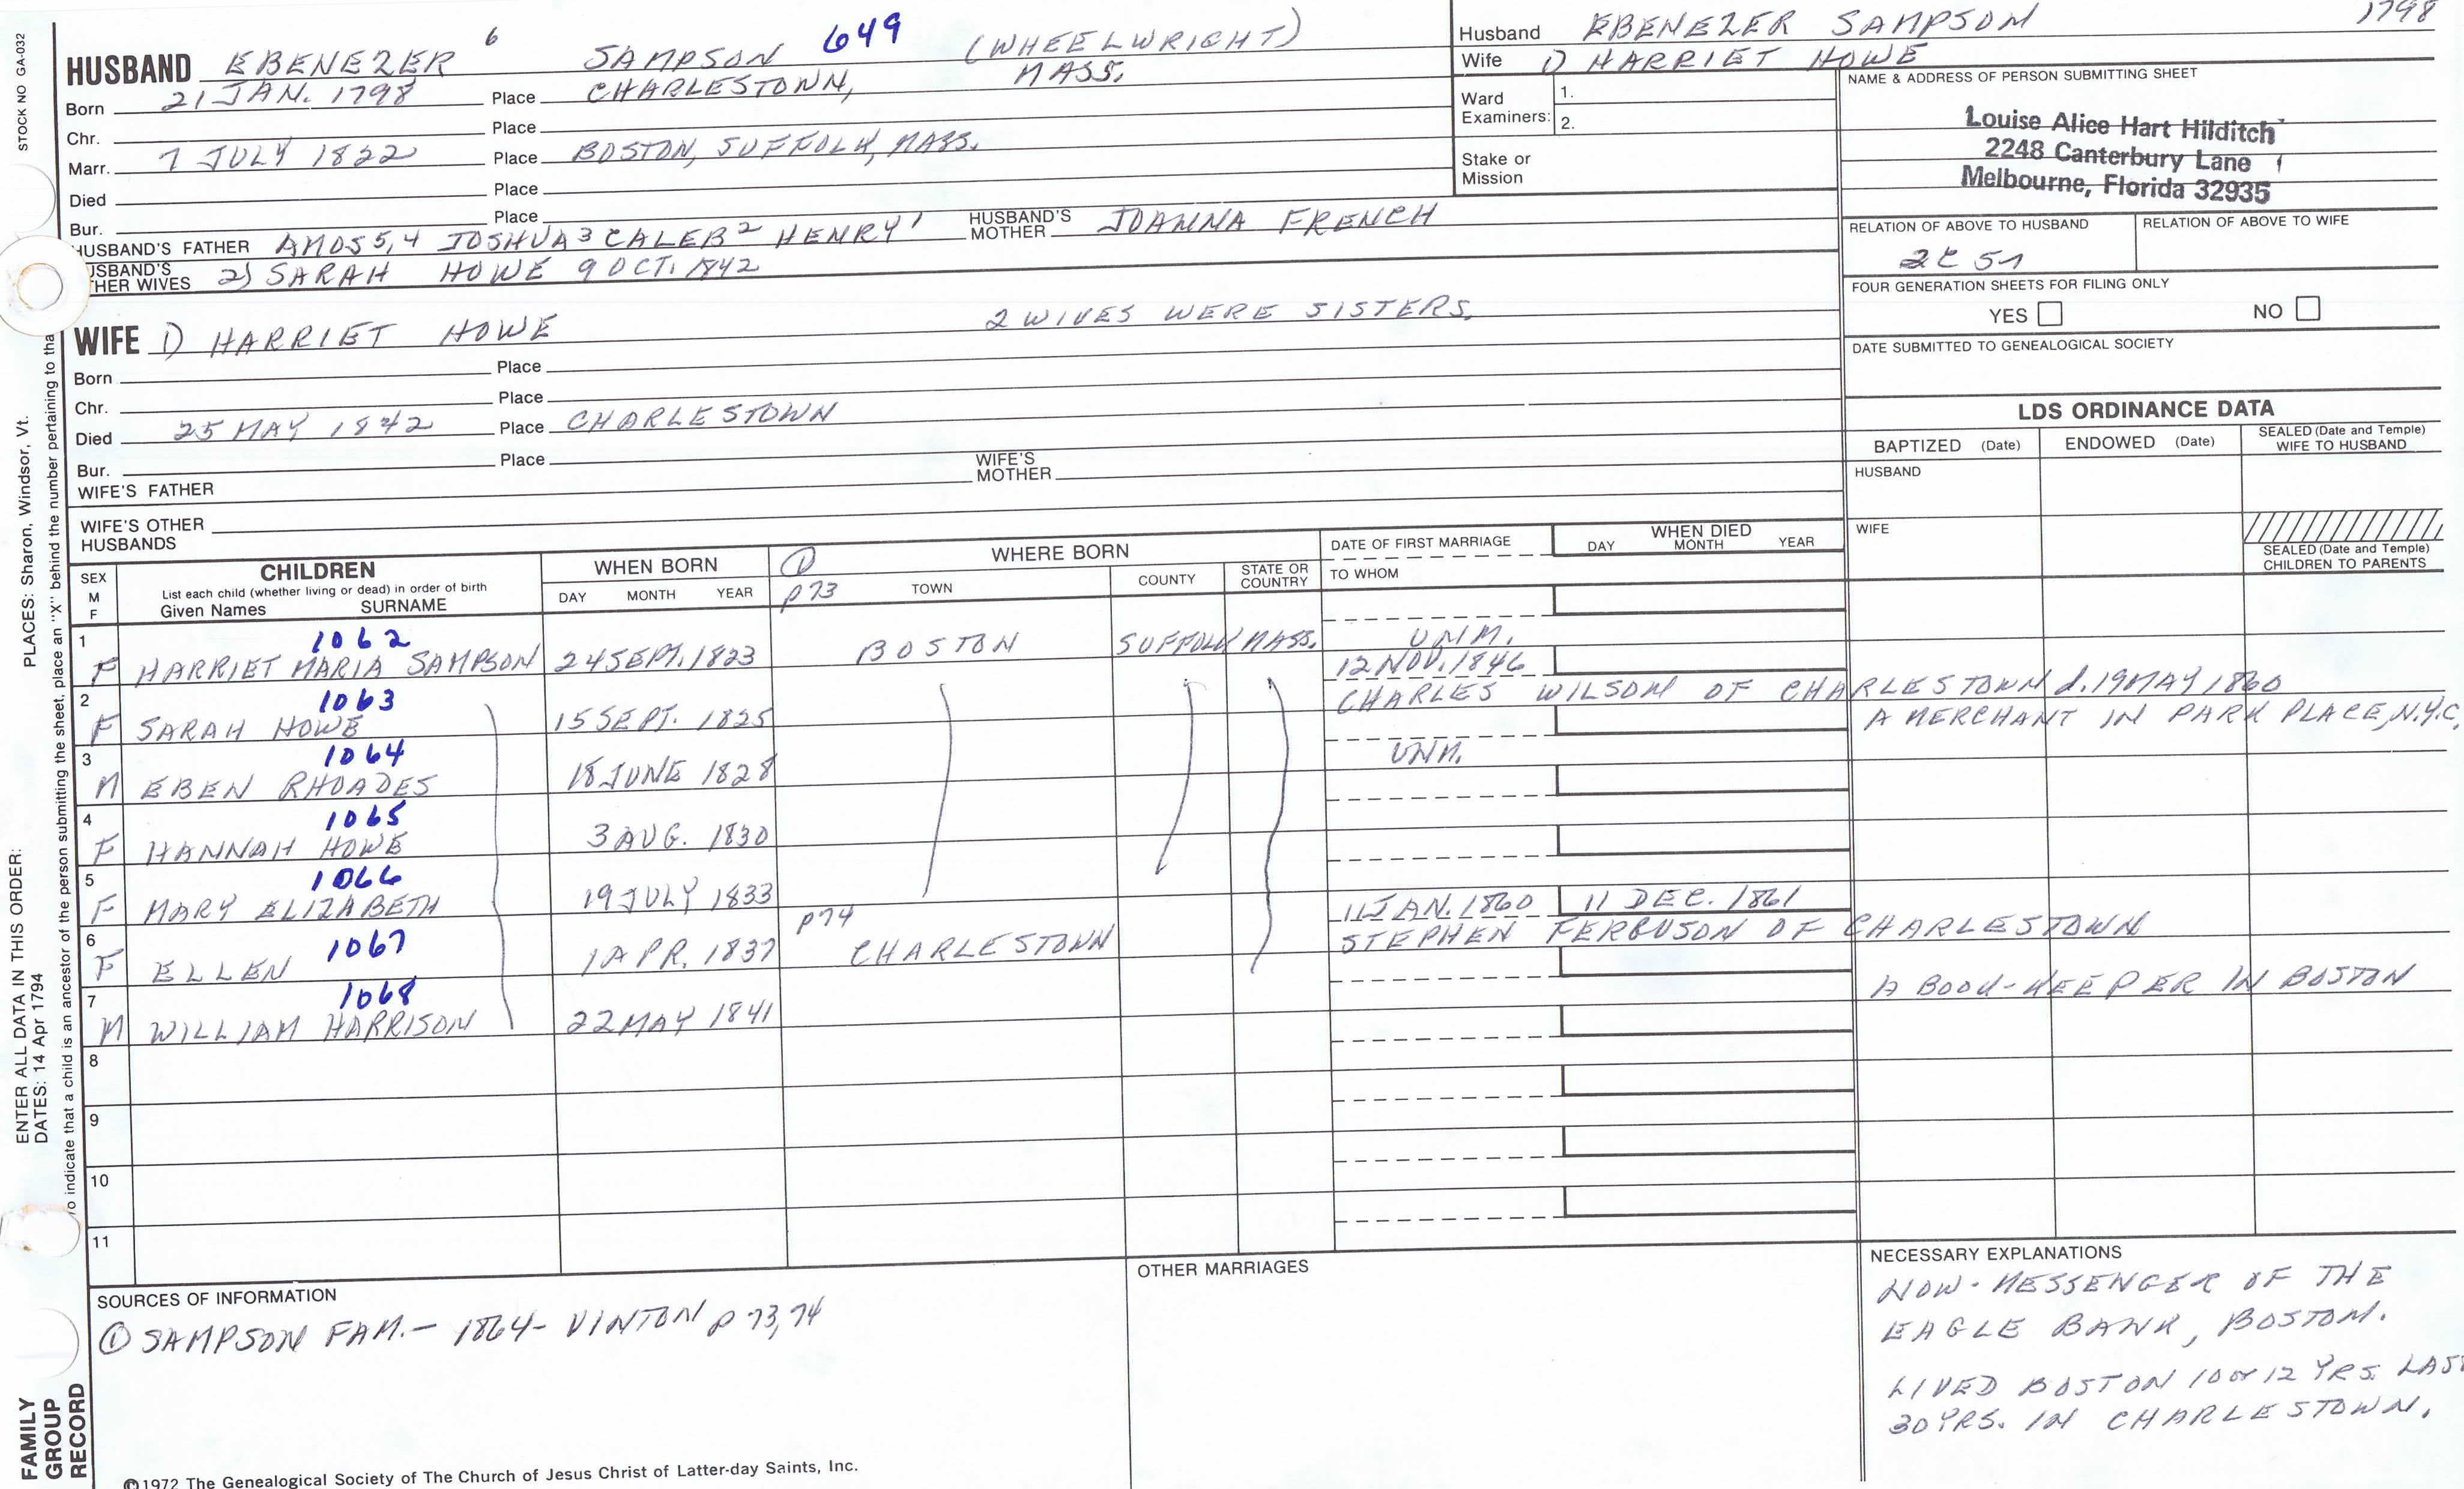 STOCK NO GA-032
HUSBAND EBENEZER 6 SAMPSON 649 (WHEELWRIGHT)
Born 21 JAN. 1798 Place CHARLESTOWN, MASS.
Chr. Place
Marr. 7 JULY 1822 Place BOSTON, SUFFOLK, MASS.
Died Place
Bur. Place
HUSBAND'S FATHER AMOS 5,4 JOSHUA 3 CALEB 2 HENRY 1 HUSBAND'S MOTHER JOANNA FRENCH
USBAND'S THER WIVES 2) SARAH HOWE 9 OCT. 1842
2 WIVES WERE SISTERS.
WIFE 1) HARRIET HOWE
Born Place
Chr. Place
Died 25 MAY 1842 Place CHARLESTOWN
Bur. Place
WIFE'S FATHER WIFE'S MOTHER
WIFE'S OTHER HUSBANDS
Husband EBENEZER SAMPSON 1798
Wife 1) HARRIET HOWE
Ward Examiners: 1.
2.
Stake or Mission
NAME & ADDRESS OF PERSON SUBMITTING SHEET
Louise Alice Hart Hilditch
2248 Canterbury Lane
Melbourne, Florida 32935
RELATION OF ABOVE TO HUSBAND RELATION OF ABOVE TO WIFE
FOUR GENERATION SHEETS FOR FILING ONLY
YES NO
DATE SUBMITTED TO GENEALOGICAL SOCIETY
LDS ORDINANCE DATA
BAPTIZED (Date) ENDOWED (Date) SEALED (Date and Temple) WIFE TO HUSBAND
HUSBAND
WIFE
SEALED (Date and Temple) CHILDREN TO PARENTS
SEX M F
CHILDREN
List each child (whether living or dead) in order of birth
Given Names SURNAME
WHEN BORN
DAY MONTH YEAR
① p73
WHERE BORN
TOWN COUNTY STATE OR COUNTRY
DATE OF FIRST MARRIAGE
TO WHOM
WHEN DIED
DAY MONTH YEAR
1 1062
F HARRIET MARIA SAMPSON 24 SEPT. 1823 BOSTON SUFFOLK MASS. UNM.
2 1063 12 NOV. 1846
F SARAH HOWE 15 SEPT. 1825 CHARLES WILSON OF CHARLESTOWN d. 19 MAY 1860
A MERCHANT IN PARK PLACE, N.Y.C.
3 1064 UNM.
M EBEN RHOADES 18 JUNE 1828
4 1065
F HANNAH HOWE 3 AUG. 1830
5 1066
F MARY ELIZABETH 19 JULY 1833
6 1067 p74 11 JAN. 1860 11 DEC. 1861
F ELLEN 1 APR. 1837 CHARLESTOWN STEPHEN FERGUSON OF CHARLESTOWN
A BOOK-KEEPER IN BOSTON
7 1068
M WILLIAM HARRISON 22 MAY 1841
8
9
10
11
SOURCES OF INFORMATION
① SAMPSON FAM. - 1864 - VINTON p 73,74
OTHER MARRIAGES
NECESSARY EXPLANATIONS
NOW - MESSENGER OF THE
EAGLE BANK, BOSTON.
LIVED BOSTON 10 or 12 YRS. LAST
30 YRS. IN CHARLESTOWN.
©1972 The Genealogical Society of The Church of Jesus Christ of Latter-day Saints, Inc.
FAMILY GROUP RECORD
ENTER ALL DATA IN THIS ORDER:
DATES: 14 Apr 1794 PLACES: Sharon, Windsor, Vt.
To indicate that a child is an ancestor of the person submitting the sheet, place an "X" behind the number pertaining to tha